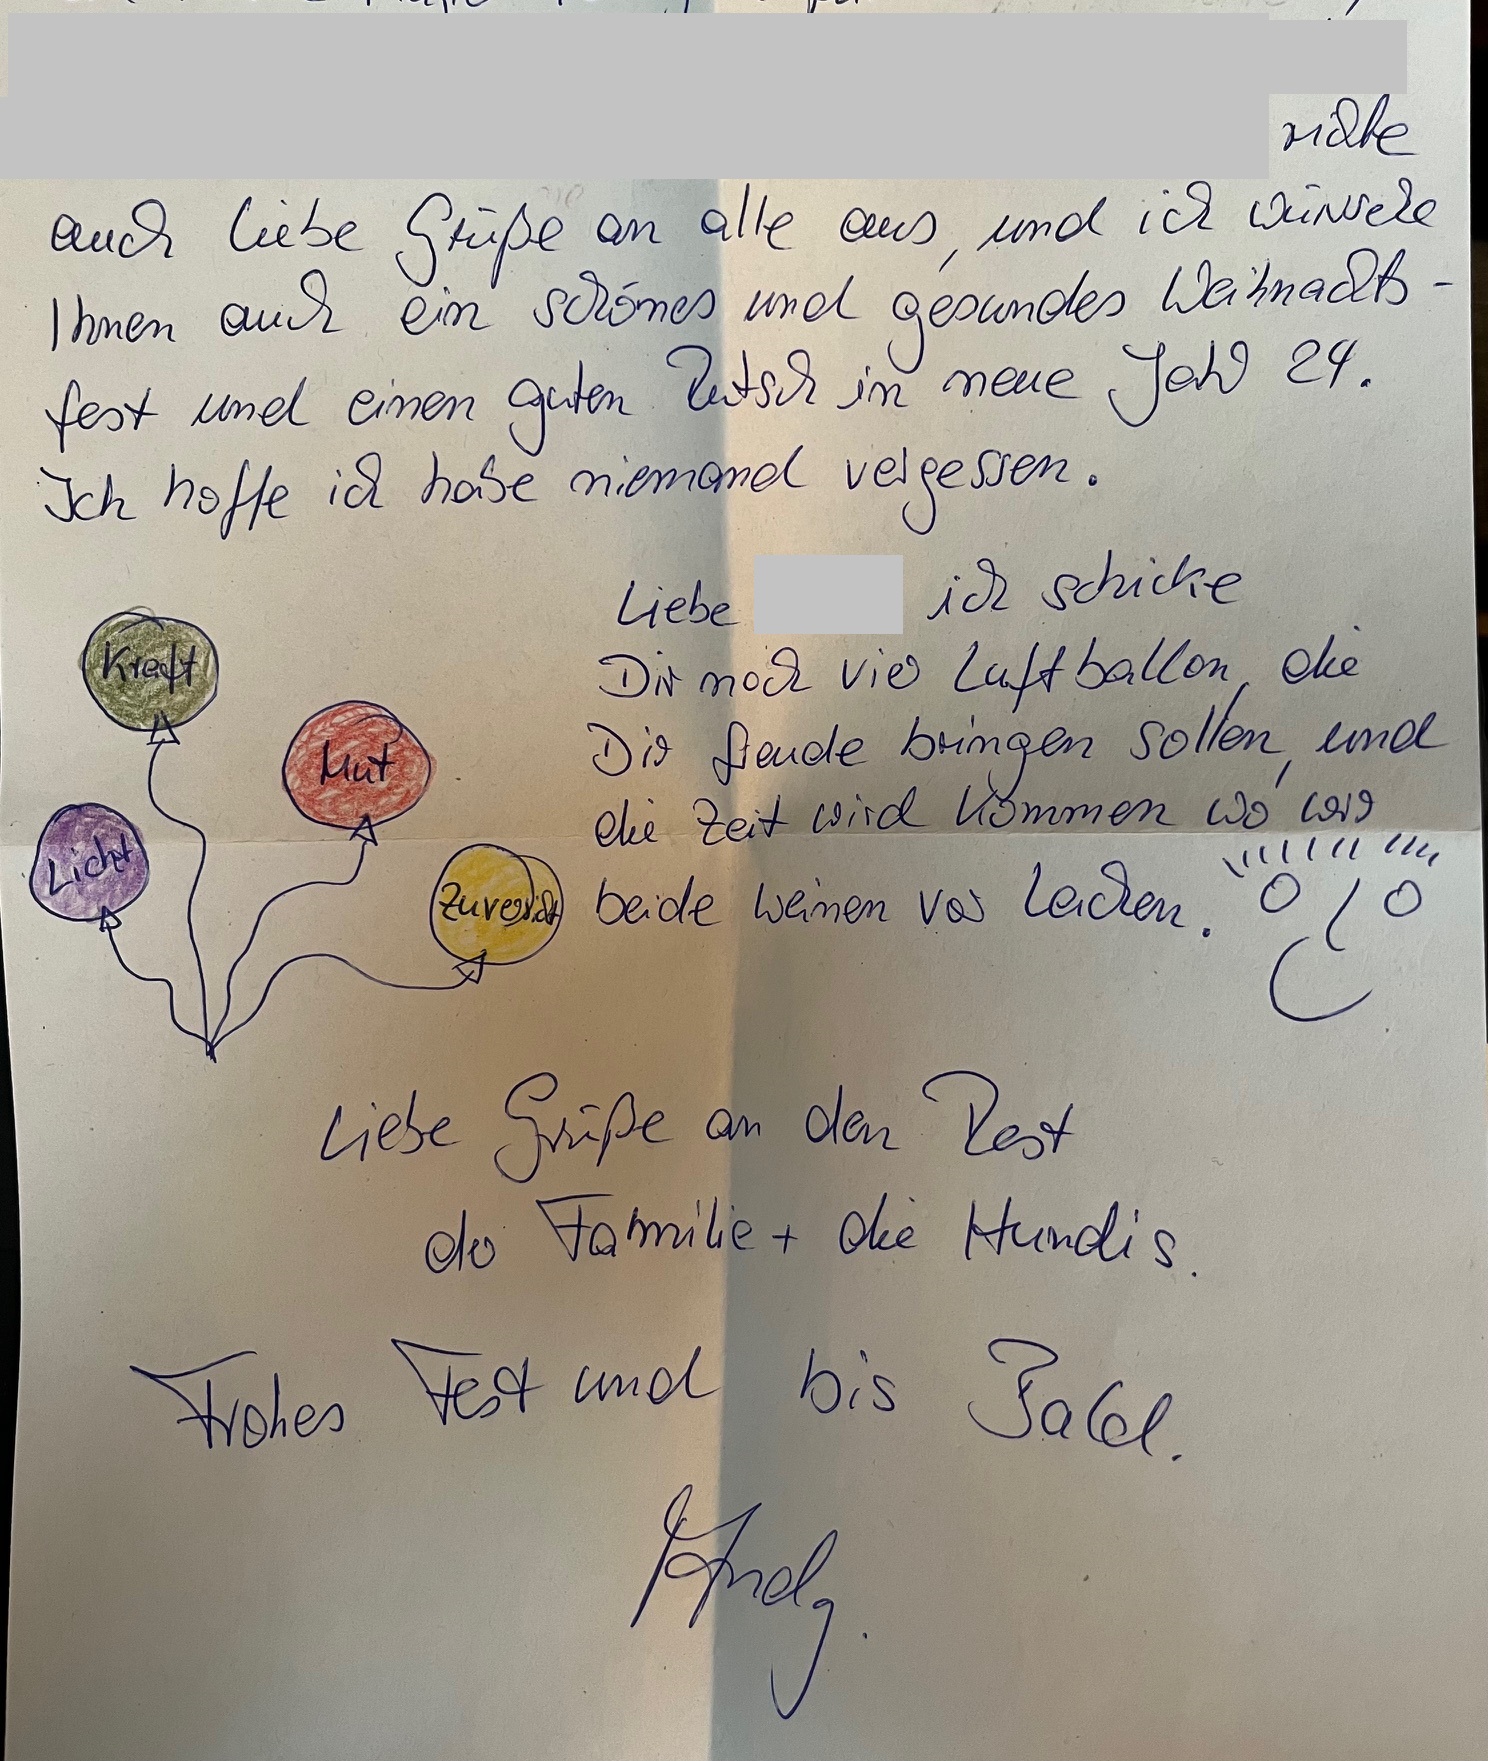 richte
auch liebe Grüße an alle aus, und ich wünsche
Ihnen auch ein schönes und gesundes Weihnachts-
fest und einen guten Rutsch in neue Jahr 24.
Ich hoffe ich habe niemand vergessen.
Liebe ich schicke
Dir noch vier Luftballon, die
Dir freude bringen sollen, und
die Zeit wird kommen wo wir
beide weinen vor Lachen.
Kraft
Mut
Licht
Zuversicht
Liebe Grüße an den Rest
der Familie + die Hundis.
Frohes Fest und bis Bald.
Andy.